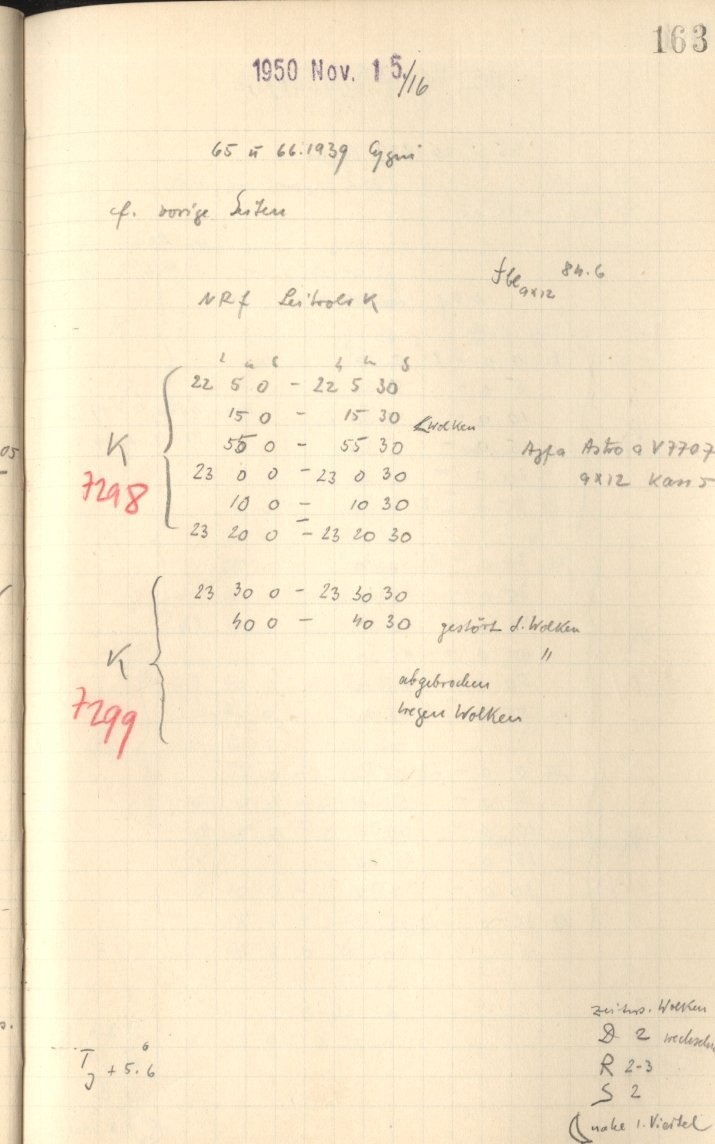 163
1950 Nov. 15./16
65 u 66.1939 Cygni
cf. vorige Seiten
fbl 9x12 84.6
NRf Leitrohr K
h m s h m s
22 5 0 - 22 5 30
15 0 - 15 30
Wolken
55 0 - 55 30
K
Agfa Astro a V7707
23 0 0 - 23 0 30
9x12 Kass 5
7298
10 0 - 10 30
23 20 0 - 23 20 30
23 30 0 - 23 30 30
40 0 - 40 30 gestört d. Wolken
K
"
abgebrochen
7299
wegen Wolken
zeitw. Wolken
D 2 wechselnd
T + 5.6
R 2-3
S 2
nahe 1. Viertel
05